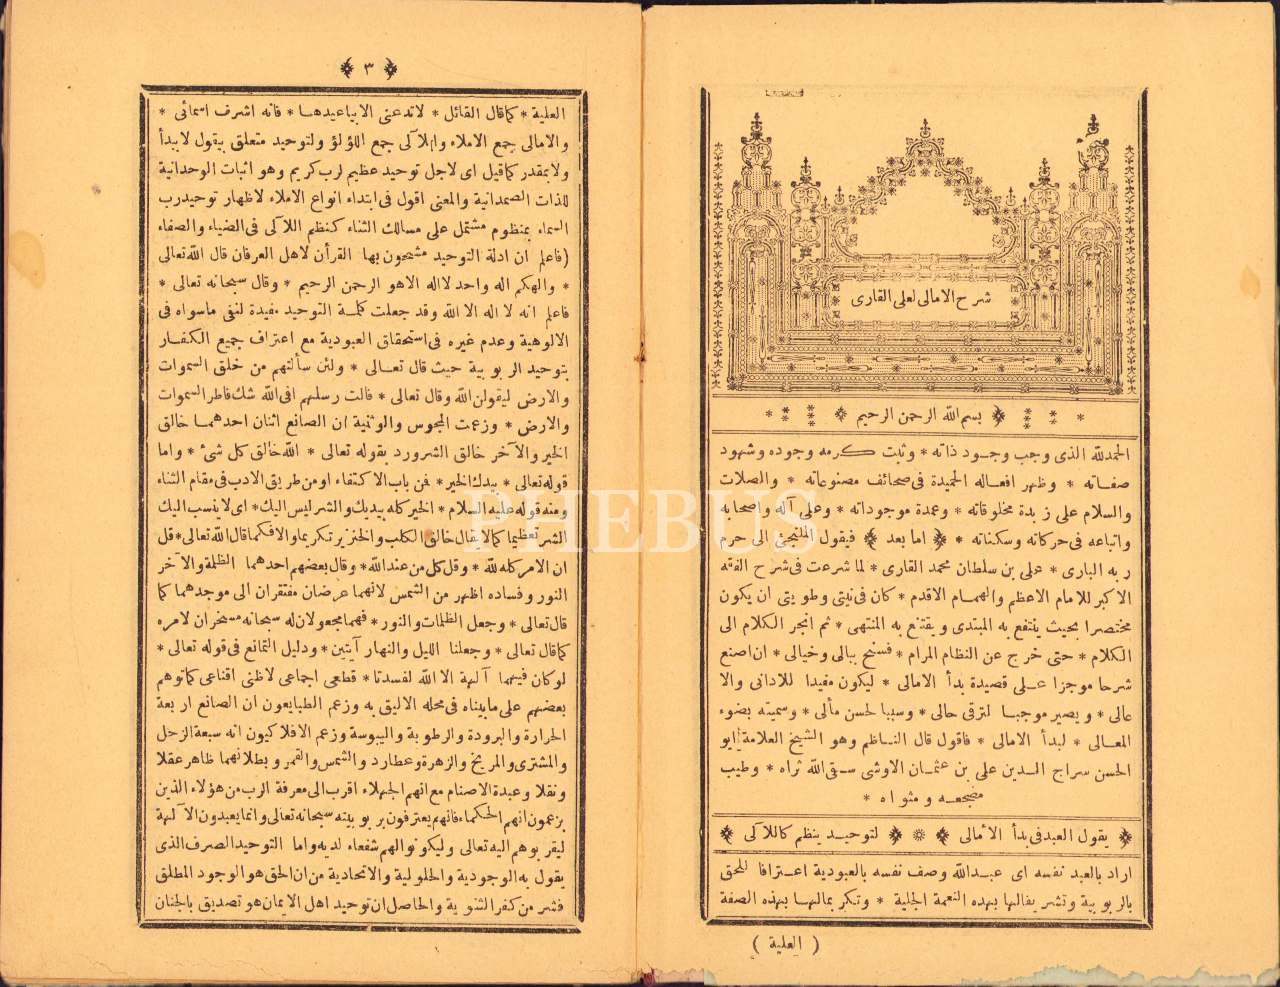 شرح الامالى لعلى القارى
بسم الله الرحمن الرحيم
الحمدلله الذى وجب وجود ذاته * وثبت كرمه وجوده وشهود
صفاته * وظهر افعاله الحميدة فى صحائف مصنوعاته * والصلات
والسلام على زبدة مخلوقاته * وعمدة موجوداته * وعلى آله واصحابه
واتباعه فى حركاته وسكناته * ﴿ اما بعد ﴾ فيقول الملتجئ الى حرم
ربه البارى * على بن سلطان محمد القارى * لما شرعت فى شرح الفقه
الاكبر للامام الاعظم والهمام الاقدم * كان فى نيتى وطويتى ان يكون
مختصرا بحيث ينتفع به المبتدى ويقتنع به المنتهى * ثم انجر الكلام الى
الكلام * حتى خرج عن النظام المرام * فسنح ببالى وخيالى * ان اصنع
شرحا موجزا على قصيدة بدأ الامالى * ليكون مفيدا للادانى والا
عالى * ويصير موجبا لترقى حالى * وسببا لحسن مآلى * وسميته بضوء
المعالى * لبدأ الامالى * فاقول قال الناظم وهو الشيخ العلامة ابو
الحسن سراج الدين على بن عثمان الاوشى سقى الله ثراه * وطيب
مضجعه ومثواه *
﴿ يقول العبد فى بدأ الأمالى ﴾ * ﴿ لتوحيد بنظم كاللآلى ﴾
اراد بالعبد نفسه اى عبدالله وصف نفسه بالعبودية اعترافا للحق
بالربوبية وتشريفالها بهذه النعمة الجلية * وتبكر بمالها بهذه الصفة
( العلية )
﴿ ٣ ﴾
العلية * كما قال القائل * لاتدعنى الا بياعبدها * فانه اشرف اسمائى *
والامالى جمع الاملاء واللآلى جمع اللؤلؤ ولتوحيد متعلق بيقول لا ببدأ
ولا بمقدر كما قيل اى لاجل توحيد عظيم لرب كريم وهو اثبات الوحدانية
للذات الصمدانية والمعنى اقول فى ابتداء انواع الاملاء لاظهار توحيد رب
السماء بمنظوم مشتمل على مسالك الثناء كنظم اللآلى فى الضياء والصفاء
(فاعلم ان ادلة التوحيد مشحون بها القرأن لاهل العرفان قال الله تعالى
* والهكم اله واحد لااله الاهو الرحمن الرحيم * وقال سبحانه تعالى *
فاعلم انه لا اله الا الله وقد جعلت كلمة التوحيد مفيدة لنفى ماسواه فى
الالوهية وعدم غيره فى استحقاق العبودية مع اعتراف جميع الكفار
بتوحيد الربوبية حيث قال تعالى * ولئن سألتهم من خلق السموات
والارض ليقولن الله وقال تعالى * قالت رسلهم افى الله شك فاطر السموات
والارض * وزعمت المجوس والوثنية ان الصانع اثنان احدهما خالق
الخير والآخر خالق الشر ورد بقوله تعالى * الله خالق كل شئ * واما
قوله تعالى * بيدك الخير * فمن باب الاكتفاء او من طريق الادب فى مقام الثناء
ومنه قوله عليه السلام * الخير كله بيديك والشر ليس اليك * اى لا ينسب اليك
الشر تعظيما كما لا يقال خالق الكلب والخنزير تكريما والا فكما قال الله تعالى * قل
ان الامر كله لله * وقل كل من عند الله * وقال بعضهم احدهما الظلمة والآخر
النور وفساده اظهر من الشمس لانهما عرضان مفتقران الى موجدهما كما
قال تعالى * وجعل الظلمات والنور * فهما مجعولان له سبحانه مسخران لامره
كما قال تعالى * وجعلنا الليل والنهار آيتين * ودليل التمانع فى قوله تعالى *
لو كان فيهما آلهة الا الله لفسدتا * قطعى اجماعى لاظنى اقناعى كما توهم
بعضهم على ما بيناه فى محله الاليق به وزعم الطبايعون ان الصانع اربعة
الحرارة والبرودة والرطوبة واليبوسة وزعم الافلاكيون انه سبعة الزحل
والمشترى والمريخ والزهرة وعطارد والشمس والقمر وبطلانهما ظاهر عقلا
ونقلا وعبدة الاصنام مع انهم الجهلاء اقرب الى معرفة الرب من هؤلاء الذين
يزعمون انهم الحكماء فانهم يعترفون بربوبيته سبحانه تعالى وانما يعبدون الآلهة
ليقربوهم اليه تعالى وليكونوا لهم شفعاء لديه واما التوحيد الصرف الذى
يقول به الوجودية والحلولية والاتحادية من ان الحق هو الوجود المطلق
فشر من كفر الثنوية والحاصل ان توحيد اهل الايمان هو تصديق بالجنان
PHEBUS